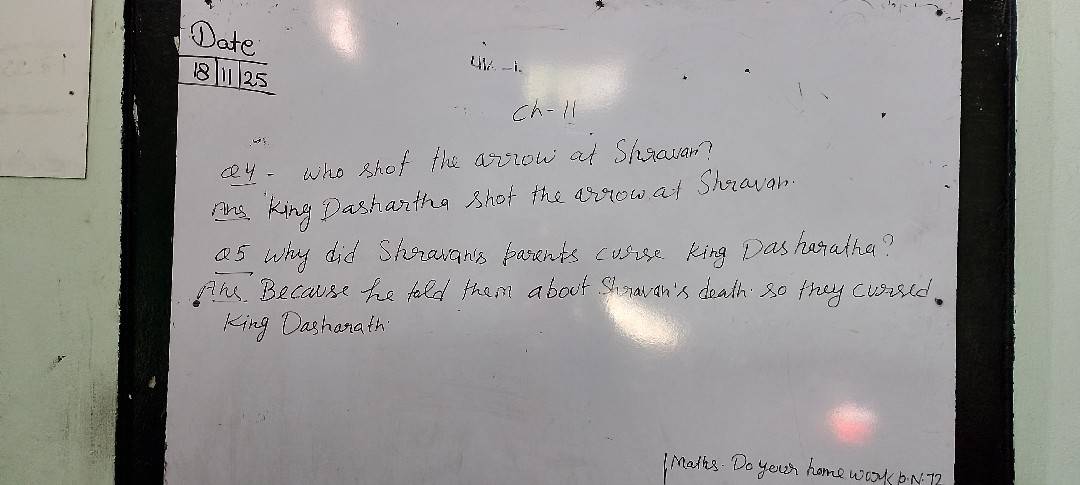 Date
18|11|25
Ch-11
Q4 - Who shot the arrow at Shravan?
Ans King Dashartha shot the arrow at Shravan.
Q5 Why did Shravan's parents curse King Dasharatha?
Ans. Because he told them about Shravan's death. so they cursed
King Dasharath.
Maths. Do your home work P.N.72